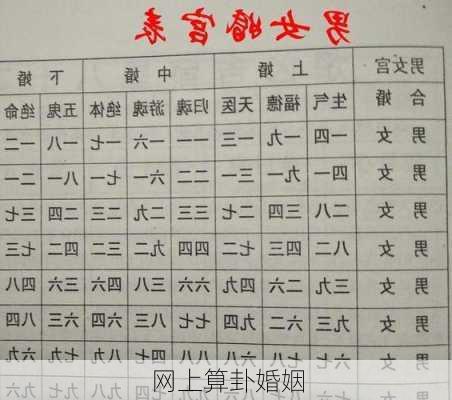 男女婚宫表
男女宫 上婚 中婚 下婚
合婚 生气 福德 天医 归魂 游魂 绝体 五鬼 绝命
男女 一四 一九 一三 一一 一六 一七 一八 一二
男女 四一 九一 三一 二二 六一 七一 八一 二一
男女 二八 三四 二七 三三 二九 二三 二四 三七
男女 八二 四三 七二 四四 九二 三二 四二 七三
男女 三九 二六 四九 六六 三八 四六 三六 四八
男女 九三 六二 九四 七七 八三 六四 六三 八四
男女 六七 七八 六八 八八 四七 八九 七九 六九
网上算卦婚姻